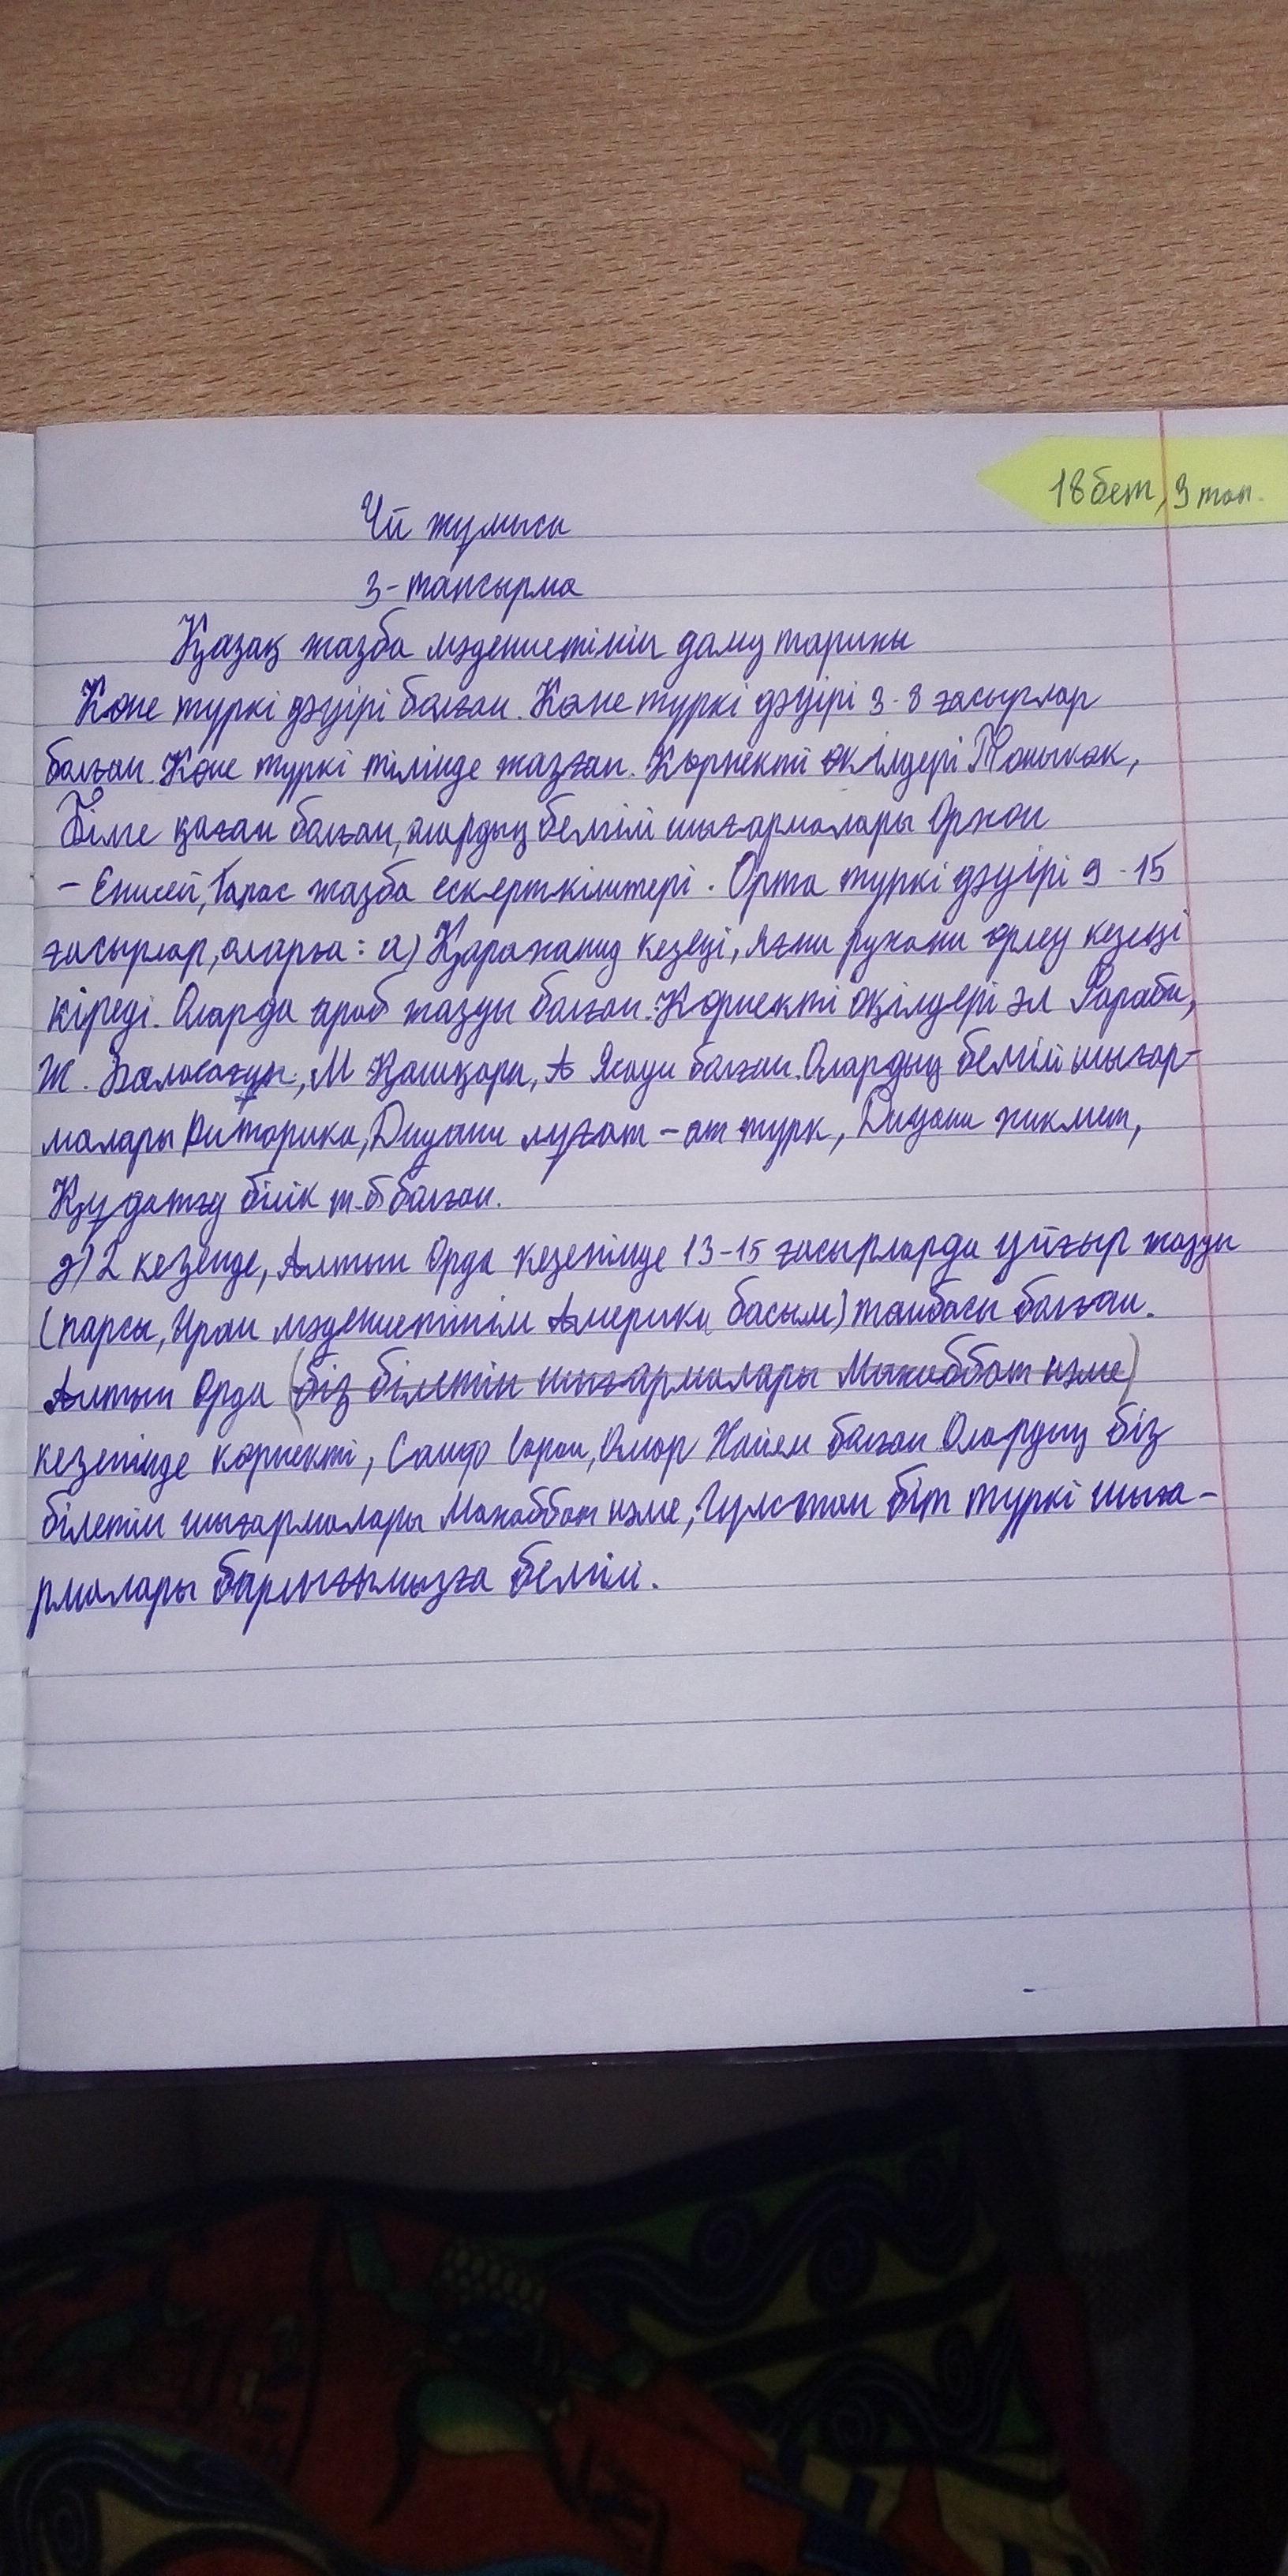 18 бет, 3 тап.
Үй жұмысы
3-тапсырма
Қазақ жазба мәдениетінің даму тарихы
Көне түркі дәуірі болған. Көне түркі дәуірі 3-8 ғасырлар
болған. Көне түркі тілінде жазған. Көрнекті өкілдері Тоныкөк,
Білге қаған болған, олардың белгілі шығармалары Орхон
- Енисей, Талас жазба ескерткіштері. Орта түркі дәуірі 9-15
ғасырлар, оларға: а) Қараханид кезеңі, яғни рухани өрлеу кезеңі
кіреді. Оларда араб жазуы болған. Көрнекті өкілдері әл Фараби,
Ж. Баласағұн, М Қашқари, А Ясауи болған. Олардың белгілі шығар-
малары Риторика, Диуани лұғат - ат түрк, Диуани хикмет,
Құдатғу білік т.б болған.
ә) 2 кезеңде, Алтын Орда кезеңінде 13-15 ғасырларда ұйғыр жазуы
(парсы, Иран мәдениетінің Америка басым) таңбасы болған.
Алтын Орда (біз білетін шығармалары Махаббат нәме)
кезеңінде көрнекті, Саиф Сараи, Омар Хайям болған Олардың біз
білетін шығармалары Махаббат нәме, Гүлстан біт түркі шыға-
рмалары барлығымызға белгілі.